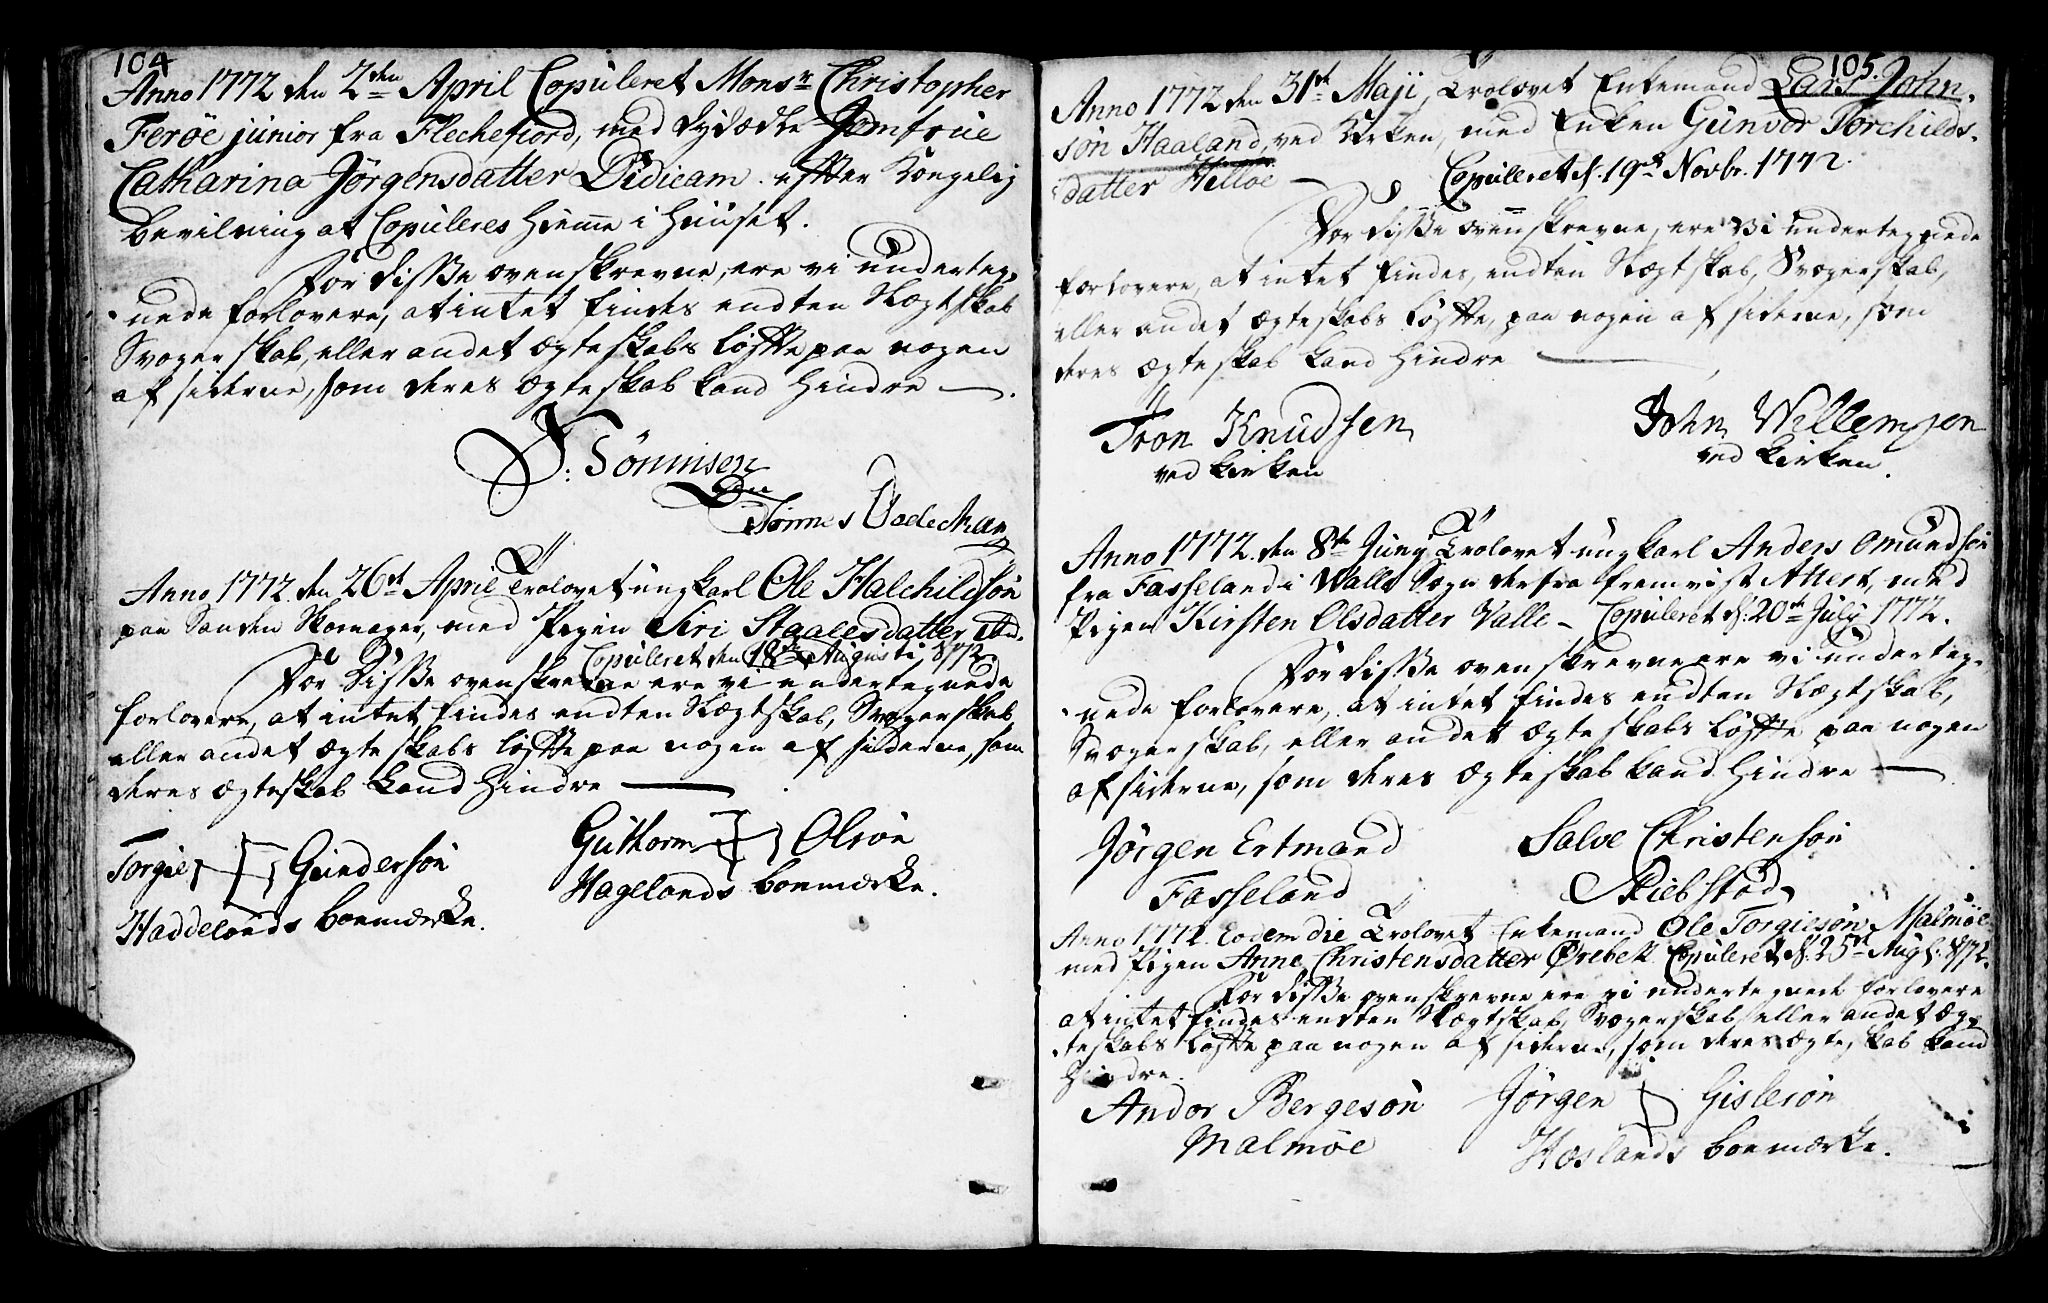 104
Anno 1772 den 2den April Copuleret Monsr Christopher
Ferøe junior fra Flechefiord, med dydædle Jomfrue
Catharina Jörgensdatter Didicam efter Kongelig
bevilning at Copuleres hiemme i Huuset.
For disse ovenskrevne, ere vi underteg-
nede forlovere, at intet findes endten Slægtskab
Svogerskab, eller andet ægteskabs löffte paa nogen
af siderne, som deres ægteskab kand hindre —.
Sönnisen
Tönnes
Anno 1772 den 26de April Trolovet ungkarl Ole Halchildsön
paa Sanden Skomager, med Pigen Siri Staalesdatter
Copuleret den 18de Augusti 1772
For Disse ovenskrevne ere vi undertegnede
forlovere, at intet findes endten Slægtskab, Svogerskab,
eller andet ægteskabs löffte paa nogen af siderne, som
deres ægteskab kand hindre —.
Torgie Gundersön
Haddelands boemærke.
Guthorm Olsön
Hagelands boemærke.
105.
Anno 1772 den 31te Maji, Trolovet Enkemand Lars John-
sön Haaland, ved Kirken, med Enken Gunvor Torchilds-
datter Helloe — Copuleret d. 19de Novbr. 1772.
For disse ovenskrevne, ere vi undertegnede
forlovere, at intet findes, endten Slægtskab, Svogerskab,
eller andet ægteskabs löffte, paa nogen af siderne, som
deres ægteskab kand hindre —
Tron Knudsen
ved kirken
John Willemsen
ved kirken.
Anno 1772 den 8de Juny Trolovet ungkarl Anders Omundsön
fra Fasseland i Walle Sogn derfra fremvist Attest, med
Pigen Kirsten Olsdatter Valle — Copuleret d. 20de July 1772.
For disse ovenskrevne ere vi underteg-
nede forlovere, at intet findes endten Slægtskab,
Svogerskab, eller andet ægteskabs löffte paa nogen
af siderne, som deres ægteskab kand hindre —
Jörgen Ertmand
Fasseland
Salve Christensön
Skiebstad
Anno 1772 Eodem die Trolovet Enkemand Ole Torgiesön Malmöe
med Pigen Anne Christensdatter Örebek Copuleret d. 25de Aug. 1772.
For disse ovenskrevne ere vi undertegnede forlovere
at intet findes endten Slægtskab, Svogerskab eller andet æg-
teskabs löffte paa nogen af siderne, som deres ægteskab kand
hindre.
Andor Bergesön
Malmöe
Jörgen Gislesön
Höslands boemærke.